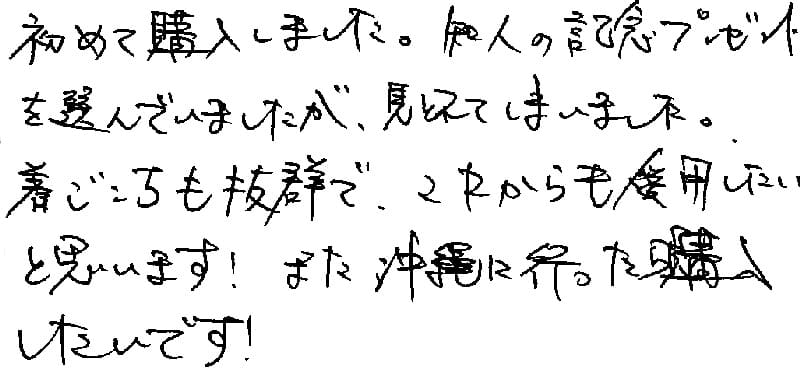 初めて購入しました。知人の記念プレゼント
を選んでいましたが、見とれてしまいました。
着ごこちも抜群で、これからも愛用したい
と思います！また沖縄に行った購入
したいです！